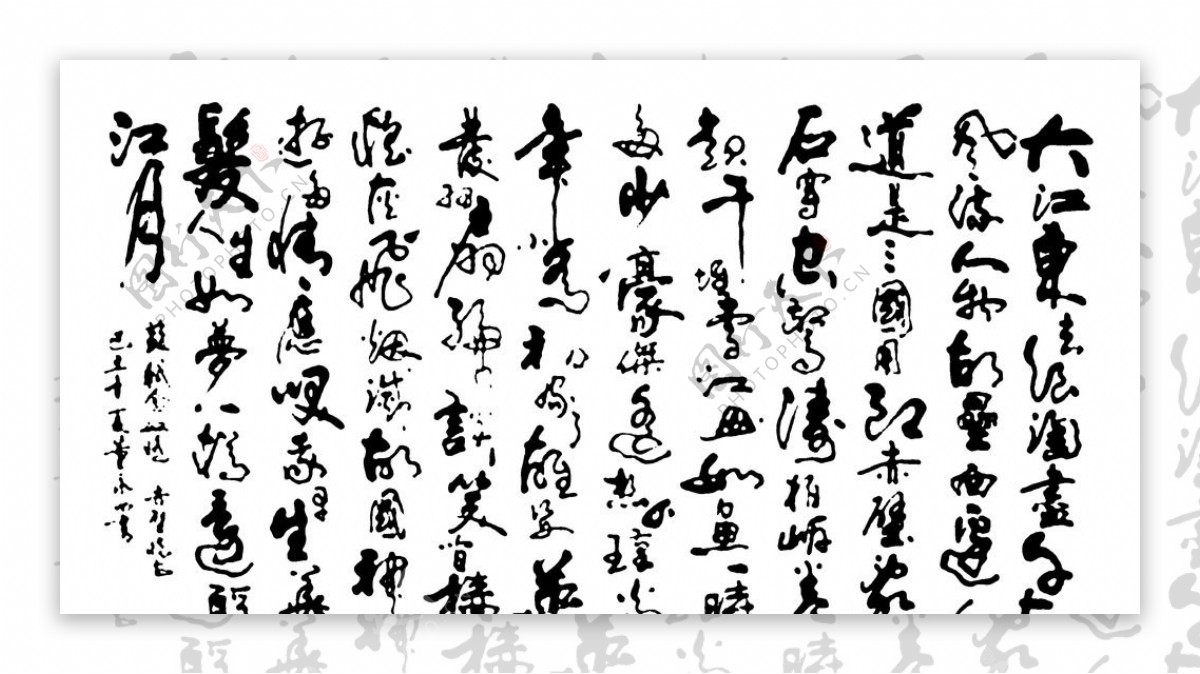 大江東去浪淘盡千古
風流人物故壘西邊人
道是三國周郎赤壁亂
石穿空驚濤拍岸卷
起千堆雪江山如畫一時
多少豪傑遙想公瑾當
年小喬初嫁了雄姿英
發羽扇綸巾談笑間檣
櫓灰飛煙滅故國神
遊多情應笑我早生華
髮人生如夢一樽還酹
江月
蘇軾念奴嬌 赤壁懷古